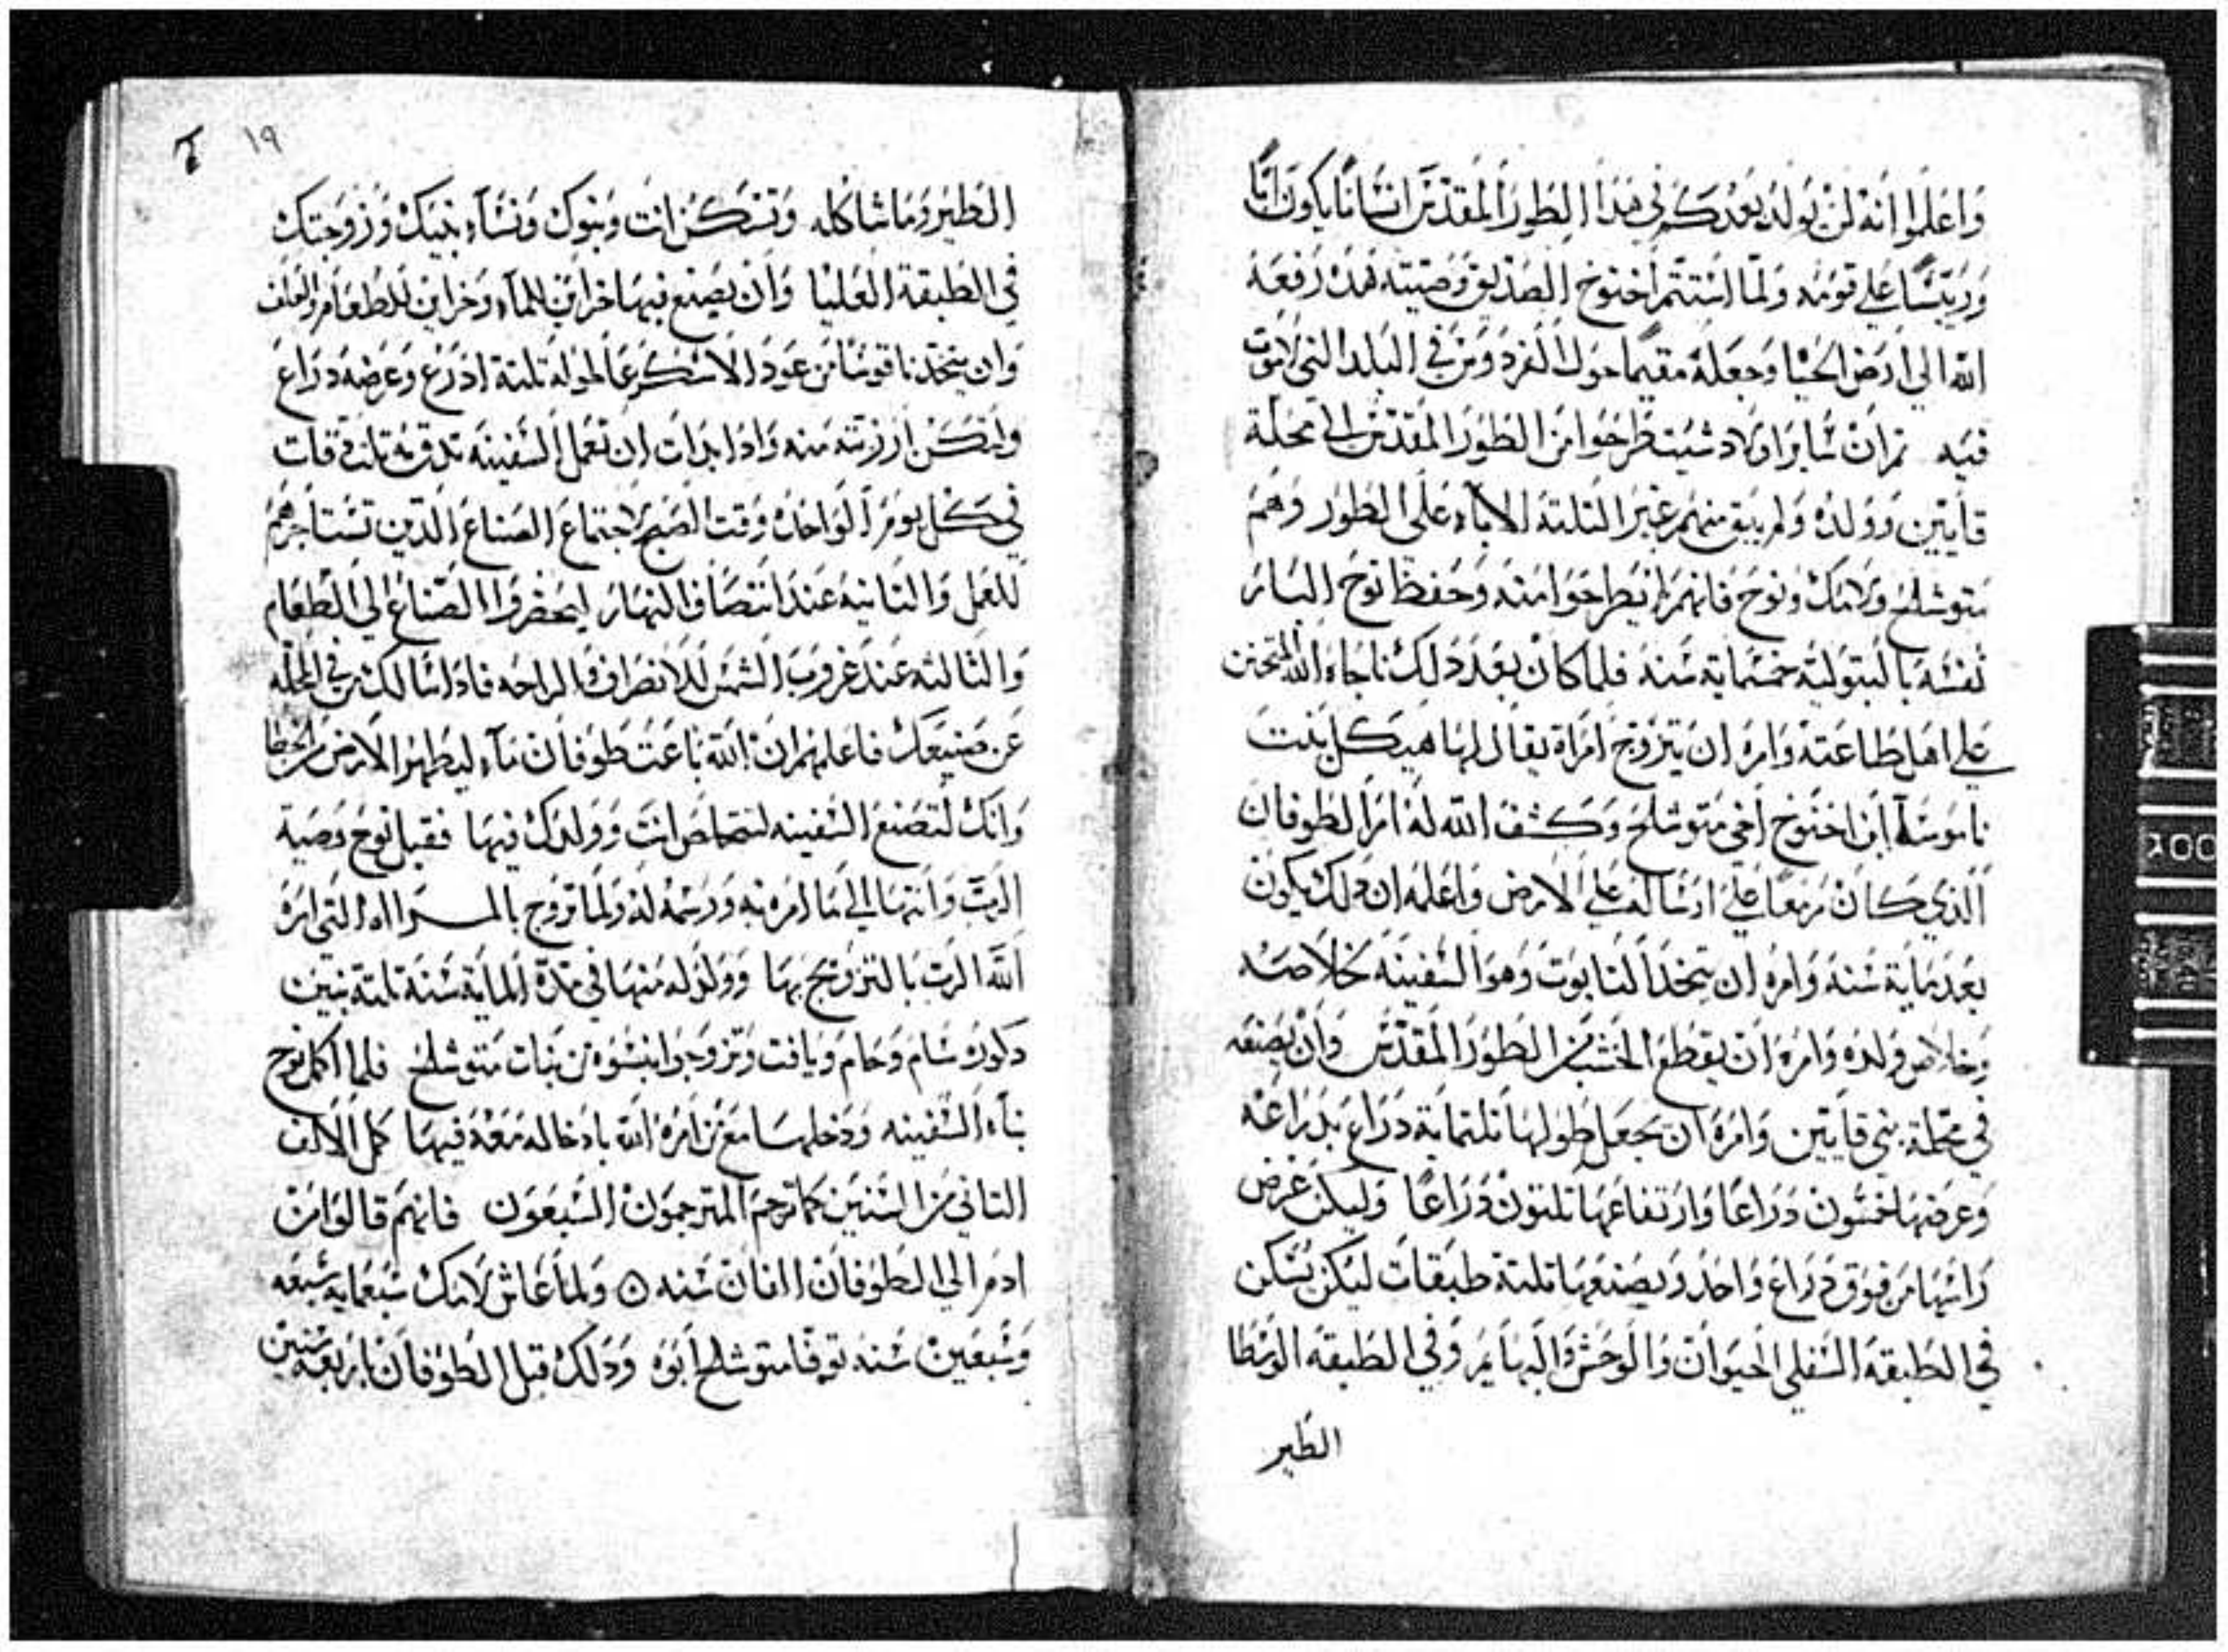 واعلموا انه لن يولد بعدكم في هذا الطور المقدس انسانا يكون اتا
ورييسا علي قومه ولما استتم اخنوخ الصديق وصيته هذه رفعه
الله الي ارض الحيا وجعله مقيما حول الفردوس في البلد التي لاموت
فيه ثم ان ساير اولاد شيت طرحوا من الطور المقدس الي محلة
قايين وولده ولم يبق منهم غير التلتة الاباء علي الطور وهم
متوشلح ولامك ونوح فانهم لم ينطرحوا منه وحفظ نوح البار
نفسه بالبتولية خمسماية سنه فلما كان بعد دلك ناجاه الله المتحنن
علي اهل طاعته وامره ان يتزوج امراة يقال لها هيكل بنت
ناموسا ابن اخنوخ اخي متوشلح وكشف الله له امر الطوفان
الذي كان مزمعا علي ارساله علي الارض واعلمه ان دلك يكون
بعد ماية سنه وامره ان يتخد التابوت وهو السفينه لخلاصه
وخلاص ولده وامره ان يقطع الخشب من الطور المقدس وان يصنعه
في محلة بني قايين وامره ان يجعل طولها تلتماية دراع بدراعه
وعرضها خمسون دراعا وارتفاعها تلتون دراعا وليكن عرض
راسها من فوق دراع واحد ويصنعها تلتة طبقات ليكن تسكن
في الطبقه السفلي الحيوان والوحش والبهايم وفي الطبقه الوسطا
الطير
١٩
الطير وما شاكله وتسكن انت وبنوك ونساء بنيك وزوجتك
في الطبقة العليا وان يصنع فيها خزاين للماء وخزاين للطعام والعلف
وان يتخد ناقوسا من عود الاشكرعا طوله تلتة ادرع وعرضه دراع
ولتكن ارزبته منه وادا بدات ان تعمل السفينه تدق به تلت دقات
في كل يوم الواحده وقت الصبح لاجتماع الصناع الدين تستاجرهم
للعمل والتانيه عند انتصاف النهار ليحضروا الصناع الي الطعام
والثالثه عند غروب الشمس للانصراف الراحه فادا سالك من في المحله
عن صنيعك فاعلمهم ان الله باعت طوفان ماء ليطهر الارض من الخطا
وانك لتصنع السفينه لتخلص انت وولدك فيها فقبل نوح وصية
الرب وانتها الي ما امره به ورسمه له ولما تزوج بالمراه التي امره
الله الرب بالتزويج بها وولد له منها في مدة الماية سنة تلتة بنين
دكوره سام وحام ويافت وتزوجوا بنسوه من بنات متوشلح فلما اكمل نوح
بناء السفينه ودخلها مع من امره الله بادخاله معه فيها كمل الالف
التاني من السنين كما ترجم المترجمون السبعون فانهم قالوا من
ادم الي الطوفان الفان سنه ه ولما عاش لامك سبعمايه سبعه
وسبعين سنه توفا متوشلح ابوه ودلك قبل الطوفان باربعه سنين